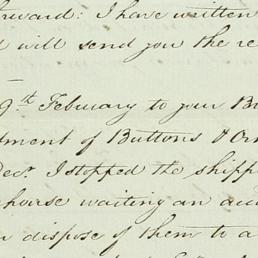 rward: I have written
will send you the re
9th February to your Br
tment of Buttons & Orn
Decr. I stopped the shipp
house waiting an acc
dispose of them to a